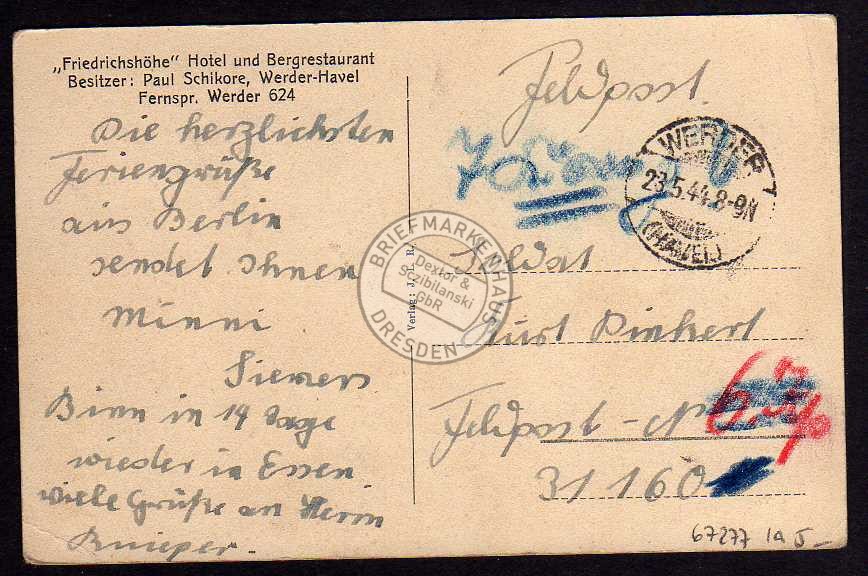 „Friedrichshöhe" Hotel und Bergrestaurant
Besitzer: Paul Schikore, Werder-Havel
Fernspr. Werder 624
Die herzlichsten
Feriengrüße
aus Berlin
sendet Ihnen
Minni
Siemers
Binn in 14 Tage
wieder in Essen
viele Grüße an Herrn
Knieper.
Verlag: J. L. R.
Feldpost.
WERDER
23.5.44.8-9N
(HAVEL)
Soldat
Kurt Dinkert
Feldpost-Nr
31160
67277 1A 5-
BRIEFMARKENHAUS
Dexlor &
Sczibilanski
GbR
DRESDEN